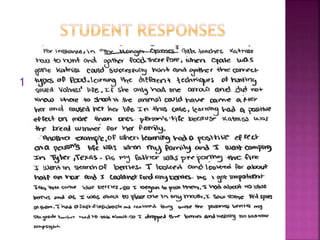 STUDENT RESPONSES
1
For instance, in "The Hunger Games" Gale teaches Katniss
how to hunt and gather food. There fore, when Gale was
gone Katniss could succesfully hunt and gather the correct
types of food. Learning the different techniques of hunting
saved Katniss' life. If she only had one arrow and did not
know where to shoot the animal could have came after
her and caused her her life. In this case, learning had a positive
effect on more than ones person's life because Katniss was
the bread winner for her family.
Another example, of when learning had a positive effect
on a person's life was when my family and I went camping
in Tyler, Texas. As my father was preparing the fire
I went in search of berries. I looked and looked for about
half an hour and I couldnt find any berries. As I got impatient
I saw some blue berries, so I began to pick them, I had about 10 blue
berries and as I was about to place one in my mouth, I saw some red spots
on them. I had a
so I dropped the berries and
campsight.